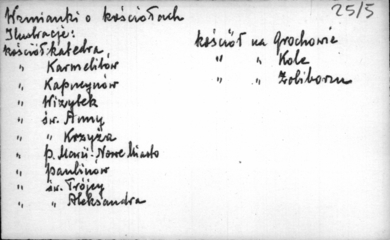 Wzmianki o kościołach
25/5
Ilustracje:
kościół katedra
" Karmelitów
" Kapucynów
" Wizytek
" św. Anny
" " Krzyża
" p. Marii - Nowe Miasto
" paulinów
" św. Trójcy
" " Aleksandra
kościół na Grochowie
" " Kole
" " Żoliborzu